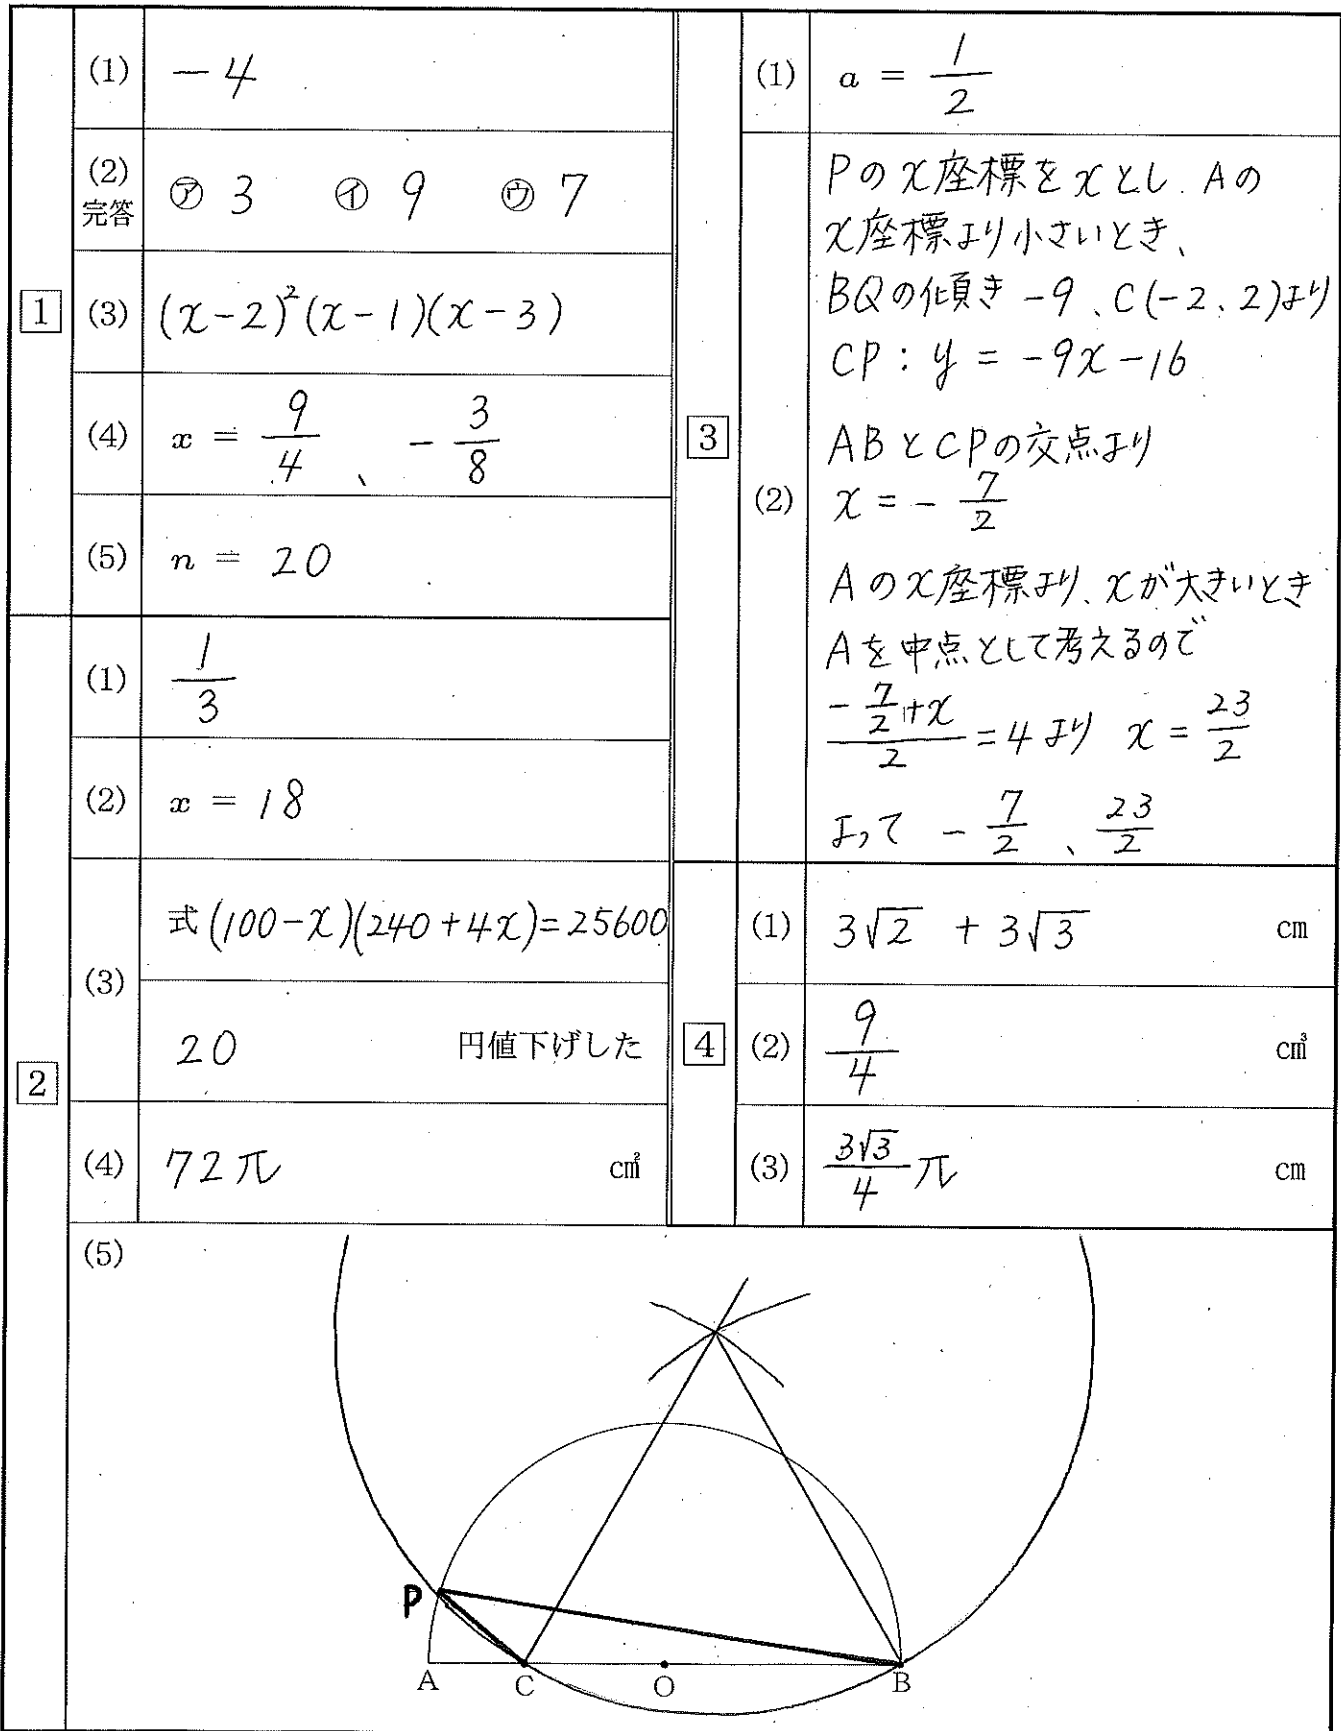 1
(1) −4
(2) 完答 ㋐ 3 ㋑ 9 ㋒ 7
(3) (x−2)²(x−1)(x−3)
(4) x = 9/4 、 −3/8
(5) n = 20
2
(1) 1/3
(2) x = 18
(3) 式 (100−x)(240+4x)=25600
20 円値下げした
(4) 72π cm²
(5)
P
A C O B
3
(1) a = 1/2
(2) Pのx座標をxとし、Aの
x座標より小さいとき、
BQの傾き −9、C(−2、2)より
CP : y = −9x−16
ABとCPの交点より
x = −7/2
Aのx座標より、xが大きいとき
Aを中点として考えるので
(−7/2+x)/2 = 4 より x = 23/2
よって −7/2 、 23/2
4
(1) 3√2 + 3√3 cm
(2) 9/4 cm³
(3) 3√3/4 π cm